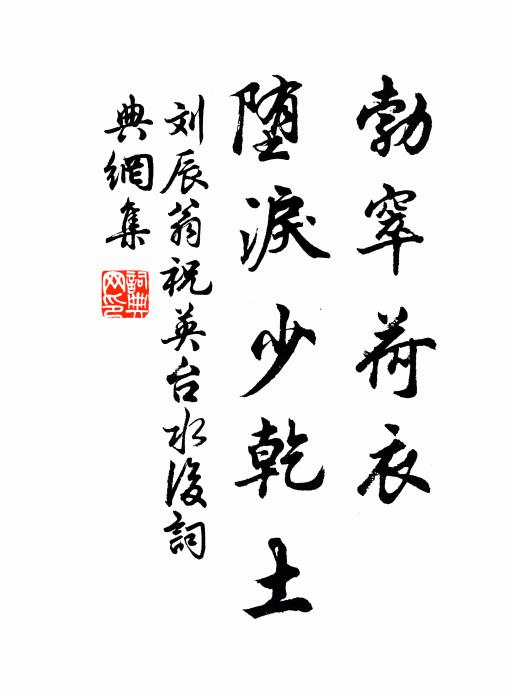 勃窣荷衣
堕淚少乾土
刘辰翁祝英台水後詞
典網集
詞典网印